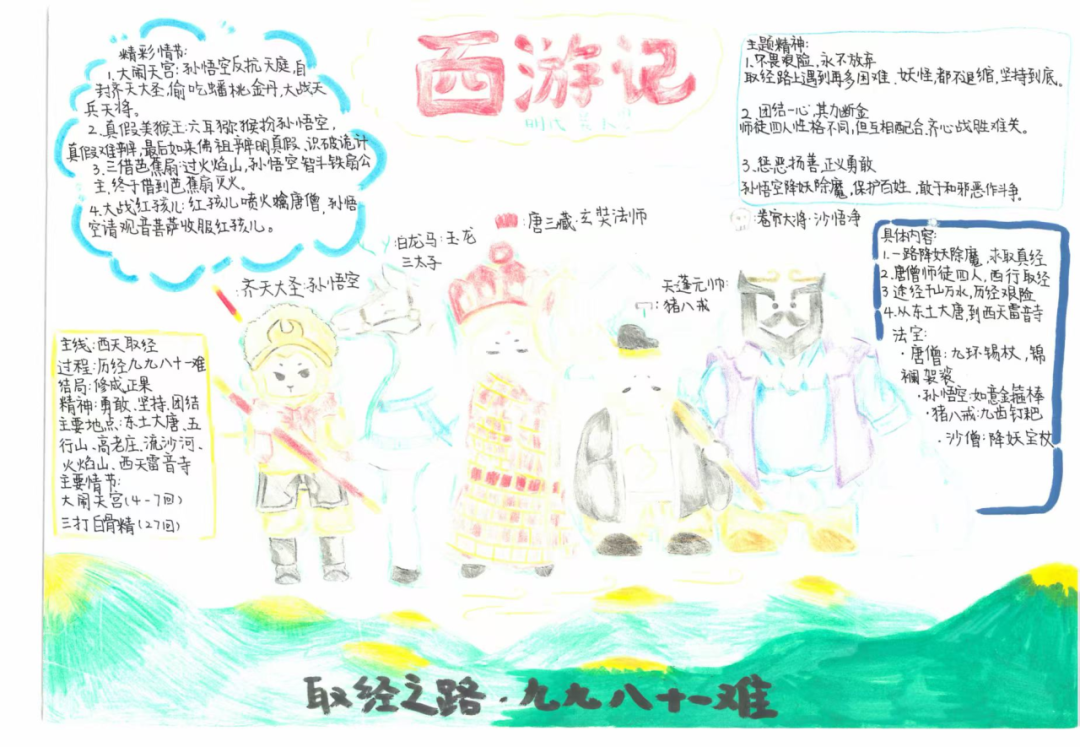 西游记
明代 吴承恩
精彩情节:
1.大闹天宫:孙悟空反抗天庭,自
封齐天大圣,偷吃蟠桃金丹,大战天
兵天将。
2.真假美猴王:六耳猕猴扮孙悟空,
真假难辨,最后如来佛祖辨明真假、识破诡计
3.三借芭蕉扇:过火焰山,孙悟空智斗铁扇公
主,终于借到芭蕉扇灭火。
4.大战红孩儿:红孩儿喷火擒唐僧,孙悟
空请观音菩萨收服红孩儿。
主题精神:
1.不畏艰险,永不放弃
取经路上遇到再多困难、妖怪,都不退缩,坚持到底。
2.团结一心,其力断金
师徒四人性格不同,但互相配合,齐心战胜难关。
3.惩恶扬善,正义勇敢
孙悟空降妖除魔,保护百姓、敢于和邪恶作斗争。
齐天大圣:孙悟空
白龙马:玉龙
三太子
唐三藏:玄奘法师
天蓬元帅:
猪八戒
卷帘大将:沙悟净
主线:西天取经
过程:历经九九八十一难
结局:修成正果
精神:勇敢、坚持、团结
主要地点:东土大唐、五
行山、高老庄、流沙河、
火焰山、西天雷音寺
主要情节:
大闹天宫(4-7回)
三打白骨精(27回)
具体内容:
1.一路降妖除魔,求取真经
2.唐僧师徒四人,西行取经
3.途经千山万水,历经艰险
4.从东土大唐,到西天雷音寺
法宝:
·唐僧:九环锡杖,锦
襕袈裟
·孙悟空:如意金箍棒
·猪八戒:九齿钉耙
·沙僧:降妖宝杖
取经之路·九九八十一难